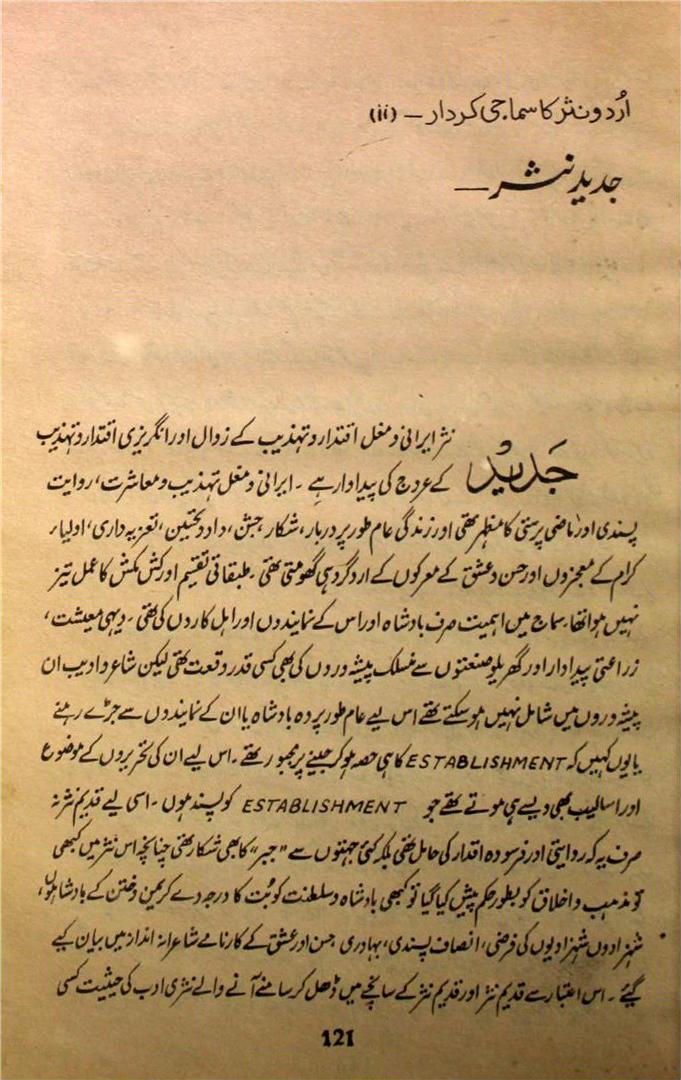 اردو نثر کا سماجی کردار — (ii)
جدید نثر —
جدید نثر ایرانی و مغل اقتدار و تہذیب کے زوال اور انگریزی اقتدار و تہذیب
کے عروج کی پیداوار ہے ۔ ایرانی و مغل تہذیب و معاشرت، روایت
پسندی اور ماضی پرستی کا مظہر تھی اور زندگی عام طور پر دربار، شکار، جشن، داد و تحسین، تعزیہ داری، اولیاء
کرام کے معجزوں اور حسن و عشق کے معرکوں کے ارد گرد ہی گھومتی تھی ۔ طبقاتی تقسیم اور کش مکش کا عمل تیز
نہیں ہوا تھا ۔ سماج میں اہمیت صرف بادشاہ اور اس کے نمایندوں اور اہل کاروں کی تھی ۔ دیہی معیشت،
زراعتی پیداوار اور گھریلو صنعتوں سے منسلک پیشہ وروں کی بھی کسی قدر وقعت تھی لیکن شاعر و ادیب ان
پیشہ وروں میں شامل نہیں ہو سکتے تھے اس لیے عام طور پر وہ بادشاہ یا ان کے نمایندوں سے جڑے رہنے
یا یوں کہیں کہ ESTABLISHMENT کا ہی حصہ ہو کر جینے پر مجبور تھے ۔ اس لیے ان کی تحریروں کے موضوع
اور اسالیب بھی ویسے ہی ہوتے تھے جو ESTABLISHMENT کو پسند ہوں ۔ اسی لیے قدیم نثر نہ
صرف یہ کہ روایتی اور فرسودہ اقدار کی حامل تھی بلکہ کئی جہتوں سے "جبر" کا بھی شکار تھی چنانچہ اس نثر میں کبھی
تو مذہب و اخلاق کو بطور حکم پیش کیا گیا تو کبھی بادشاہ و سلطنت کو بُت کا درجہ دے کر یمن و ختن کے بادشاہوں،
شہزادوں شہزادیوں کی فرضی، انصاف پسندی، بہادری حسن اور عشق کے کارنامے شاعرانہ انداز میں بیان کیے
گئے ۔ اس اعتبار سے قدیم نثر اور قدیم نثر کے سانچے میں ڈھل کر سامنے آنے والے نثری ادب کی حیثیت کسی
121